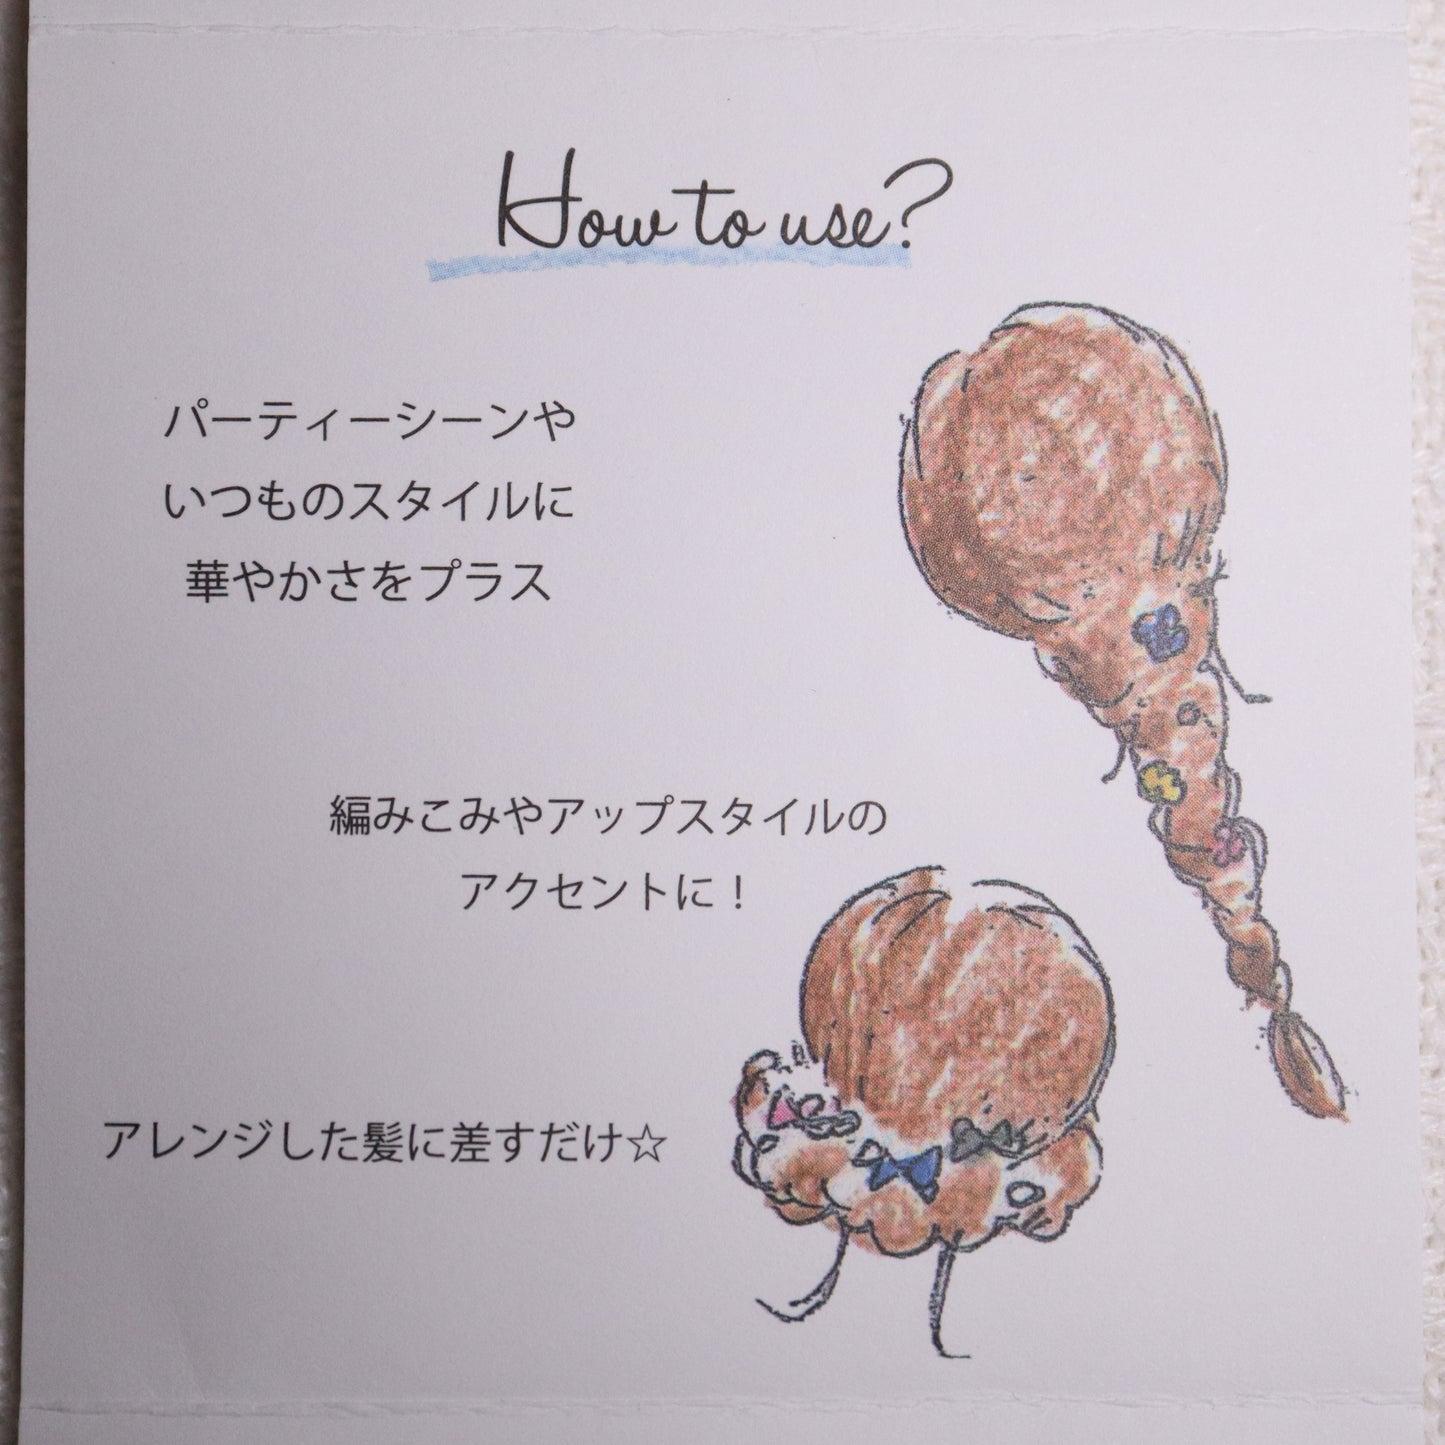 How to use?
パーティーシーンや
いつものスタイルに
華やかさをプラス
編みこみやアップスタイルの
アクセントに！
アレンジした髪に差すだけ☆